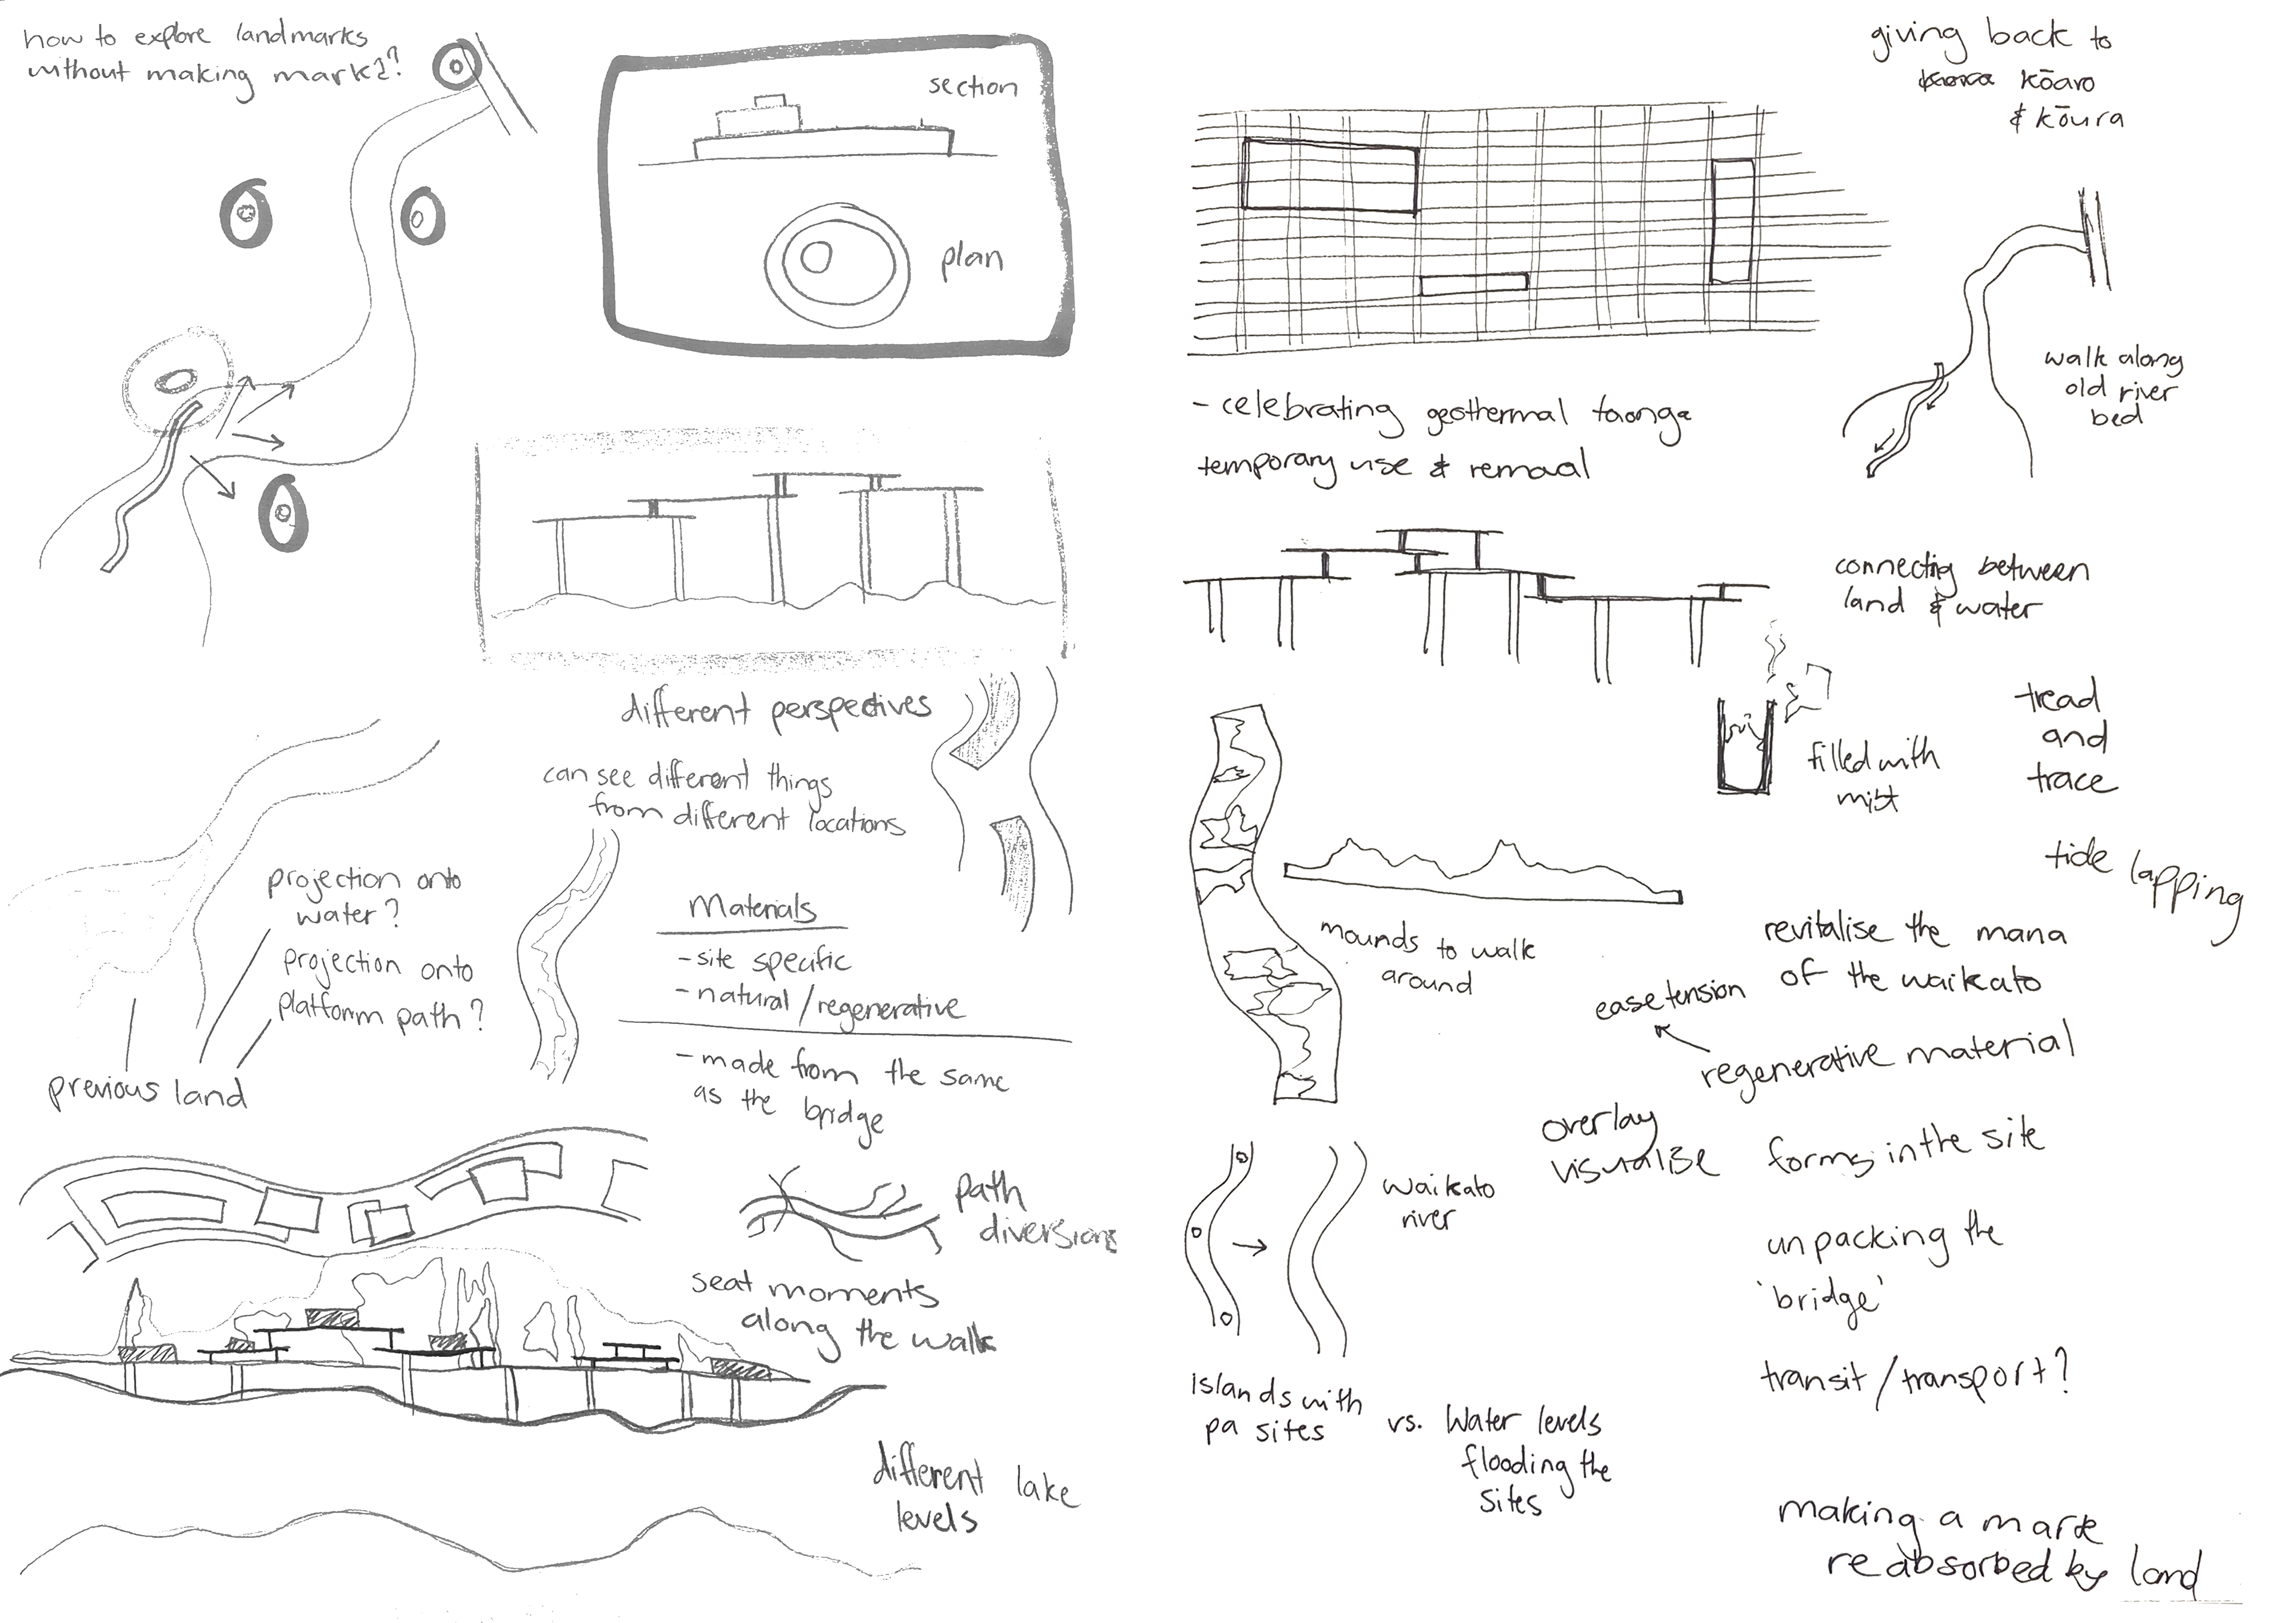 how to explore landmarks
without making marks?
section
plan
different perspectives
can see different things
from different locations
projection onto
water?
projection onto
platform path?
previous land
Materials
- site specific
- natural / regenerative
- made from the same
as the bridge
path
diversions
seat moments
along the walk
different lake
levels
giving back to
kōaro
& kōura
walk along
old river
bed
- celebrating geothermal taonga
temporary use & removal
connecting between
land & water
filled with
mist
tread
and
trace
tide lapping
mounds to walk
around
revitalise the mana
of the waikato
ease tension
regenerative material
overlay
visualise
forms in the site
waikato
river
unpacking the
'bridge'
transit / transport?
Islands with
pa sites
vs. Water levels
flooding the
sites
making a mark
reabsorbed by land